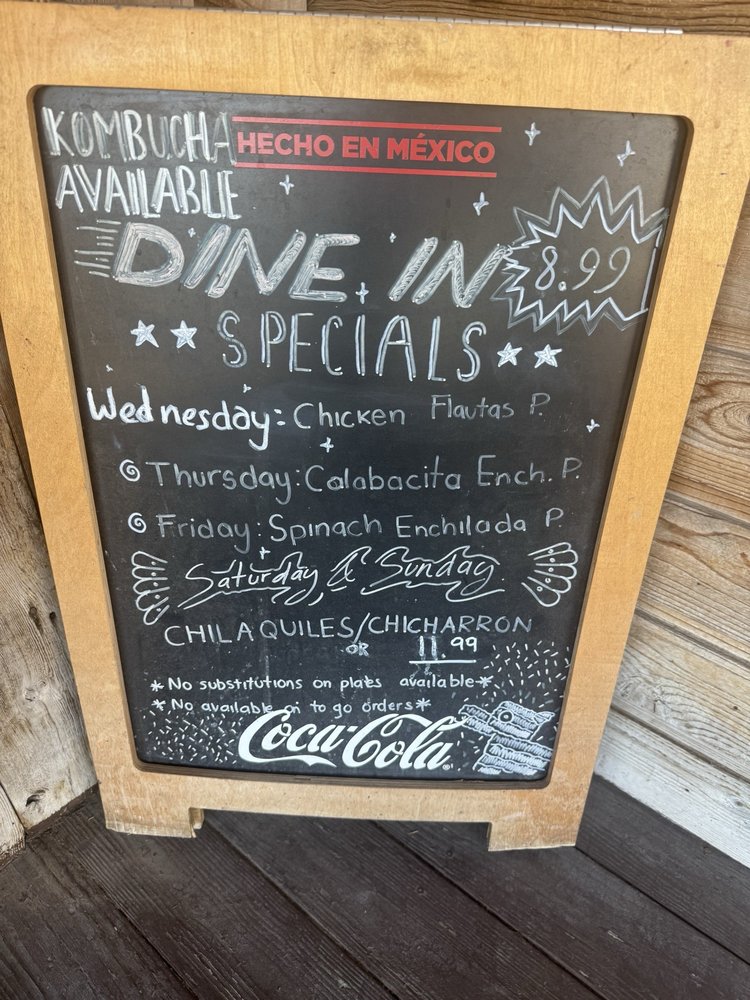 KOMBUCHA
AVAILABLE
HECHO EN MÉXICO
DINE IN
8.99
SPECIALS
Wednesday: Chicken Flautas P.
Thursday: Calabacita Ench. P.
Friday: Spinach Enchilada P.
Saturday & Sunday
CHILAQUILES/CHICHARRON
OR 11.99
*No substitutions on plates available*
*No available on to go orders*
Coca-Cola